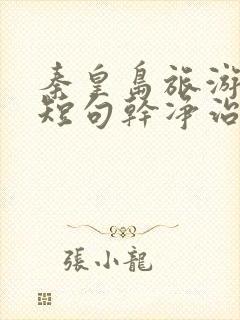 秦皇島旅游
短句幹净治
張小龍